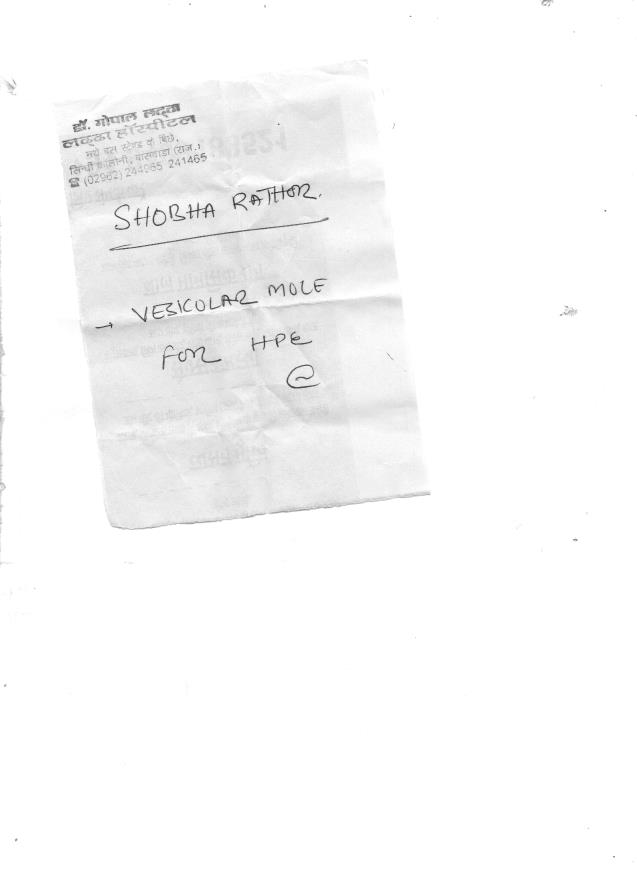 डॉ. गोपाल लद्दा
लक्का हॉस्पीटल
नये बस स्टेण्ड के पिछे,
सिन्धी कालोनी, बांसवाडा (राज.)
☎ (02962) 244065 241465
SHOBHA RATHOR.
→ VESICOLAR MOLE
FOR HPE